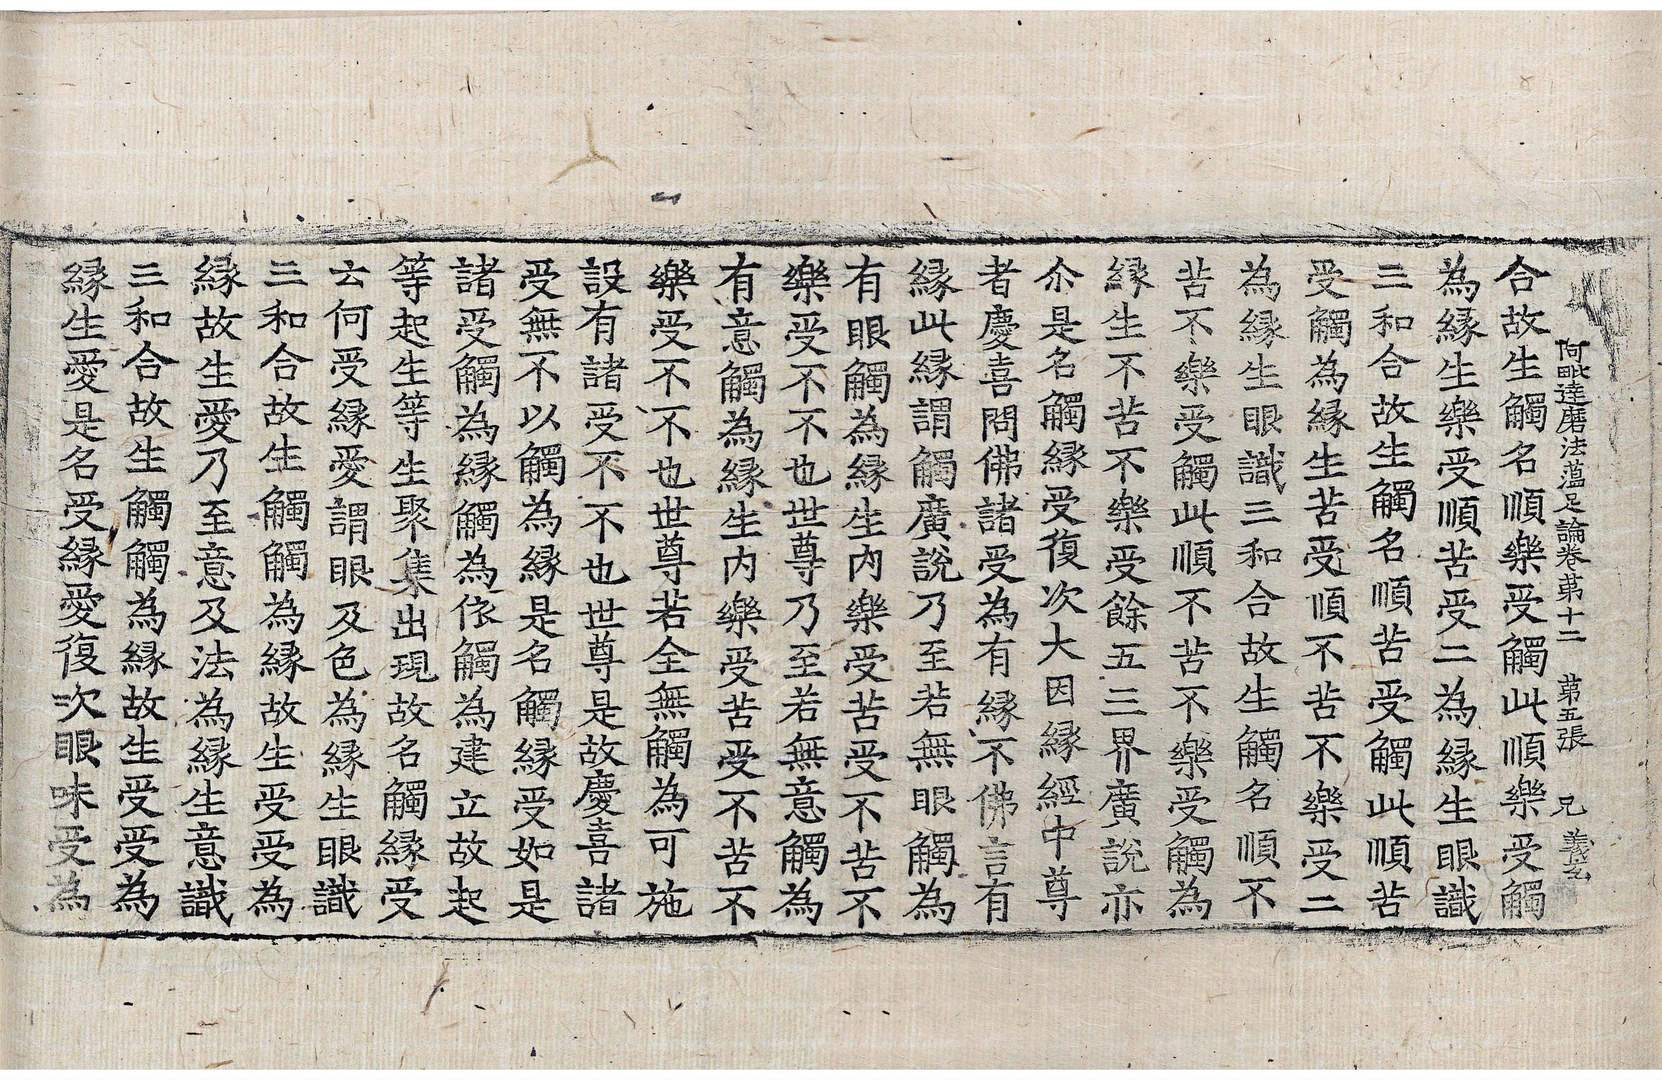 阿毗達磨法蕰足論卷苐十二　苐五張　兄　義玄
合故生觸名順樂受觸此順樂受觸
為縁生樂受順苦受二為縁生眼識
三和合故生觸名順苦受觸此順苦
受觸為縁生苦受順不苦不樂受二
為縁生眼識三和合故生觸名順不
苦不樂受觸此順不苦不樂受觸為
縁生不苦不樂受餘五三界廣說亦
尒是名觸縁受復次大因縁經中尊
者慶喜問佛諸受為有縁不佛言有
縁此縁謂觸廣說乃至若無眼觸為
有眼觸為縁生内樂受苦受不苦不
樂受不不也世尊乃至若無意觸為
有意觸為縁生内樂受苦受不苦不
樂受不不也世尊若全無觸為可施
設有諸受不不也世尊是故慶喜諸
受無不以觸為縁是名觸縁受如是
諸受觸為縁觸為依觸為建立故起
等起生等生聚集出現故名觸縁受
云何受縁愛謂眼及色為縁生眼識
三和合故生觸觸為縁故生受受為
縁故生愛乃至意及法為縁生意識
三和合故生觸觸為縁故生受受為
縁生愛是名受縁愛復次眼味受為